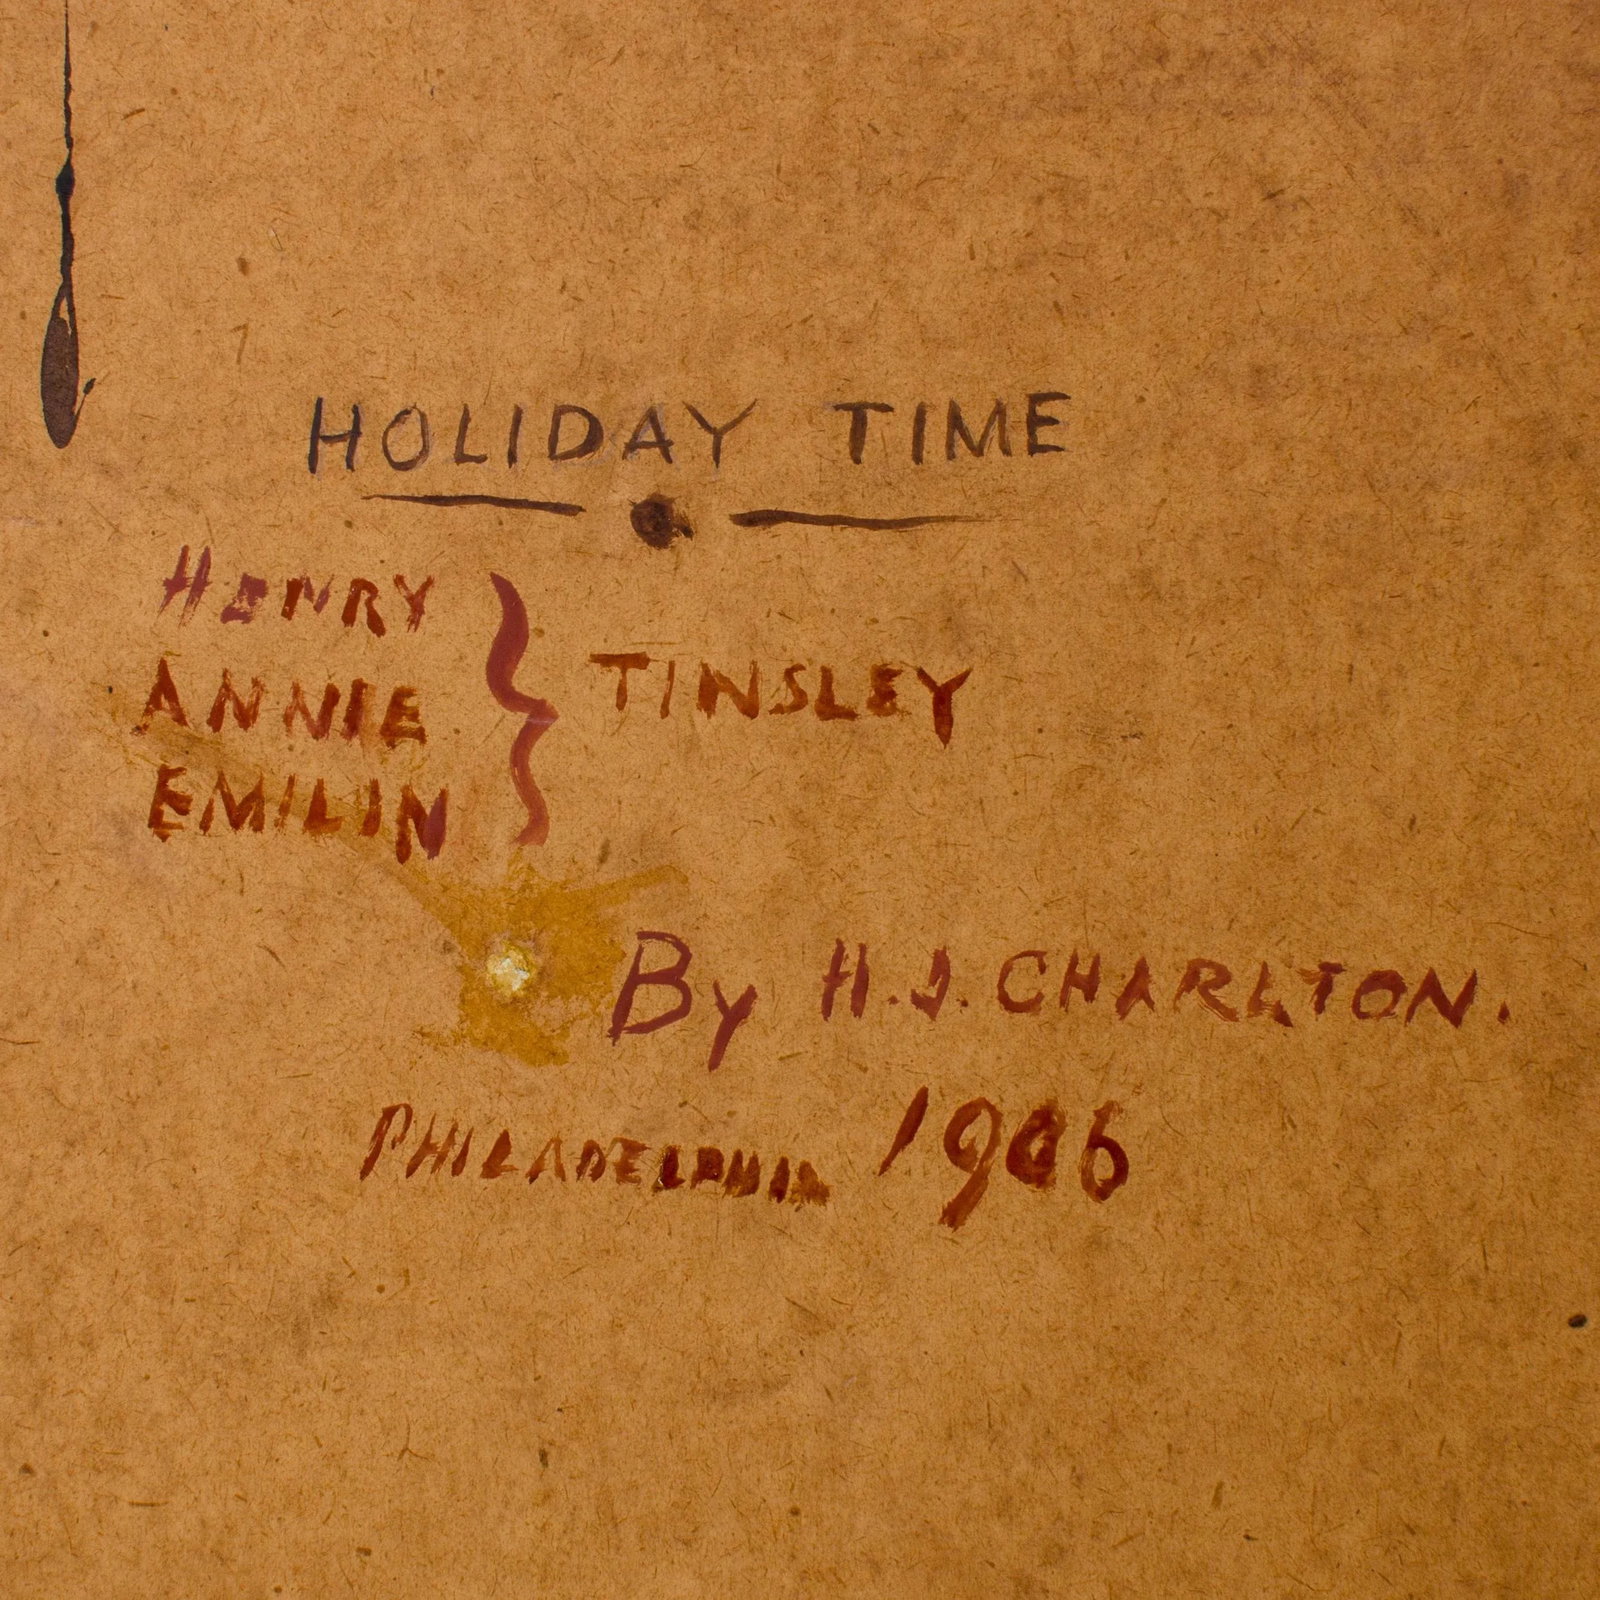 HOLIDAY TIME
HENRY
ANNIE } TINSLEY
EMILIN
By H.J. CHARLTON.
PHILADELPHIA 1906